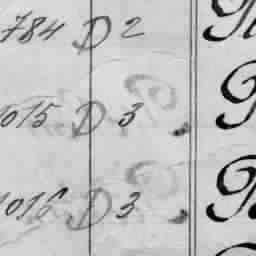 784 D 2
1015 D 3
1016 D 3